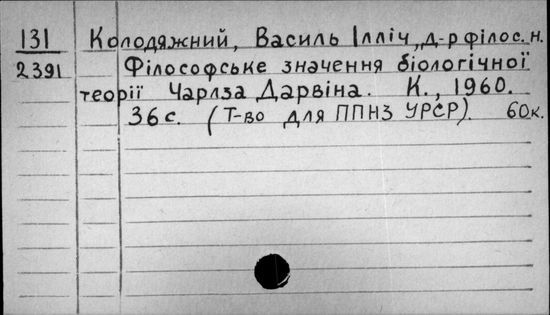 131 Колодяжний, Василь Ілліч, д-р філос. н.
2391 Філософське значення біологічної
теорії Чарлза Дарвіна. К., 1960.
36 с. (Т-во для ППНЗ УРСР). 60к.